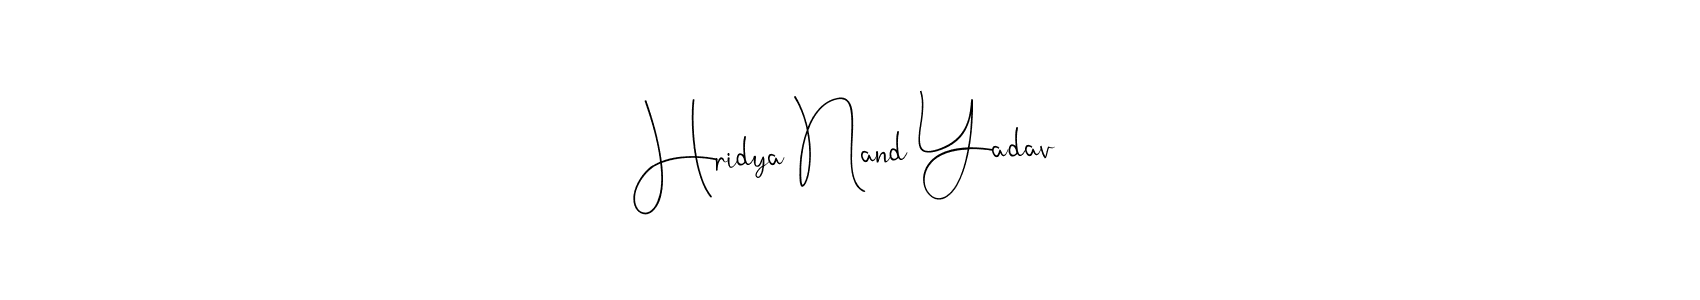 Hridya Nand Yadav